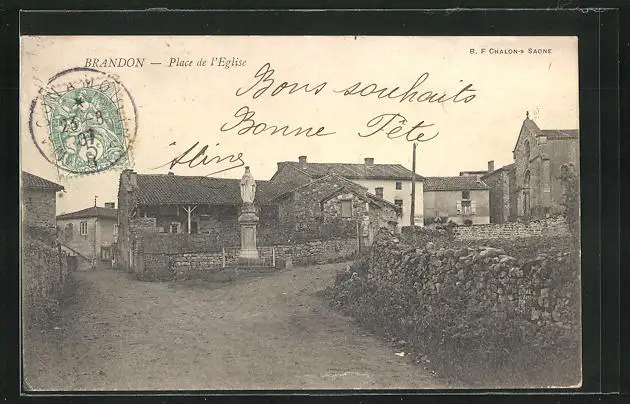 BRANDON — Place de l'Eglise
B. F CHALON-s SAONE
Bons souhaits
Bonne Fête
Aline
23-8